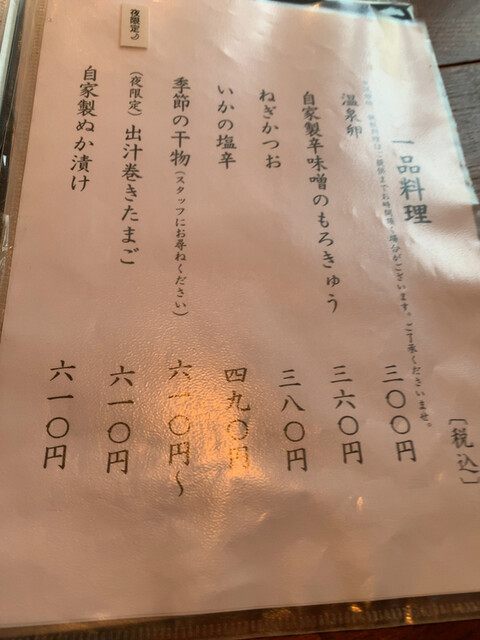 一品料理
〔税込〕
温泉卵 三〇〇円
自家製辛味噌のもろきゅう 三六〇円
ねぎかつお 三八〇円
いかの塩辛 四九〇円
季節の干物(スタッフにお尋ねください) 六一〇円〜
夜限定
(夜限定)出汁巻きたまご 六一〇円
自家製ぬか漬け 六一〇円